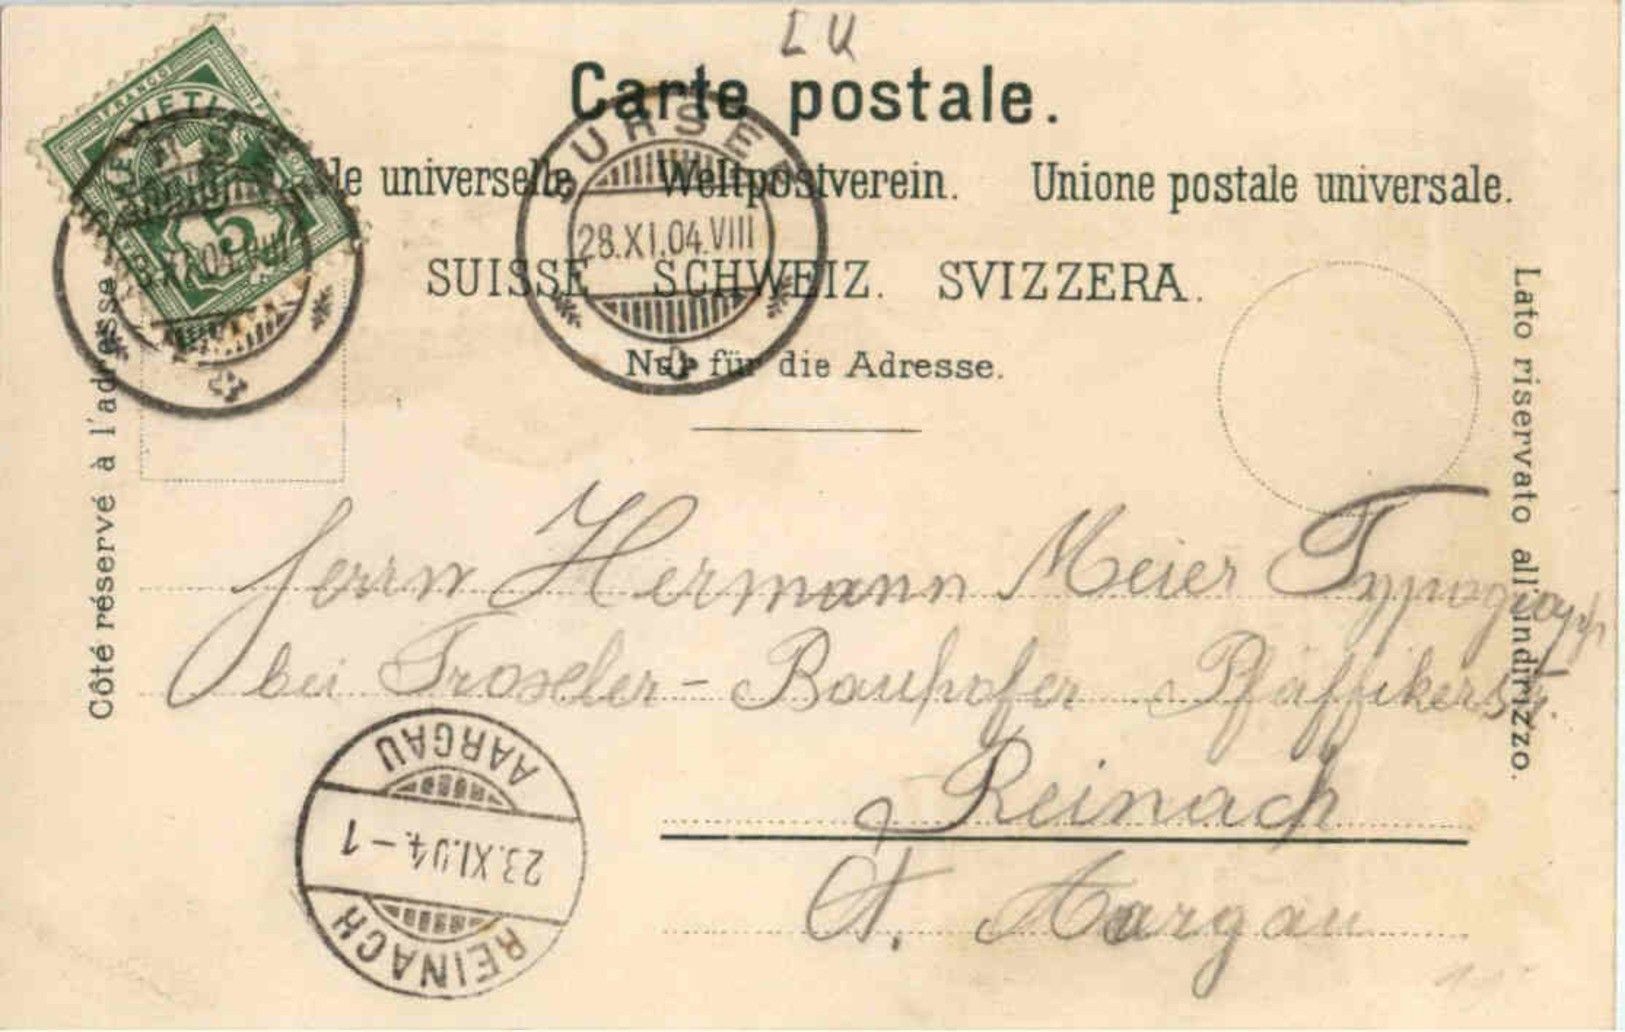 LU
Carte postale.
le universelle Weltpostverein. Unione postale universale.
SUISSE SCHWEIZ. SVIZZERA.
Nur für die Adresse.
FRANCO
HELVETIA
5
SURSEE
28.XI.04.VIII
Côté réservé à l'adresse
Lato riservato all'undirizzo.
Herrn Hermann Meier Typograph
bei Troxler-Bauhofer Pfäffikerstr.
Reinach
Ct. Aargau
AARGAU
23.XI.04.-1
REINACH